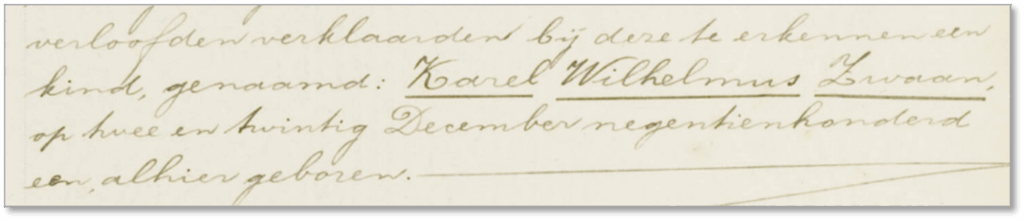 verloofden verklaarden bij deze te erkennen een
kind, genaamd: Karel Wilhelmus Zwaan,
op twee en twintig December negentienhonderd
een, alhier geboren.